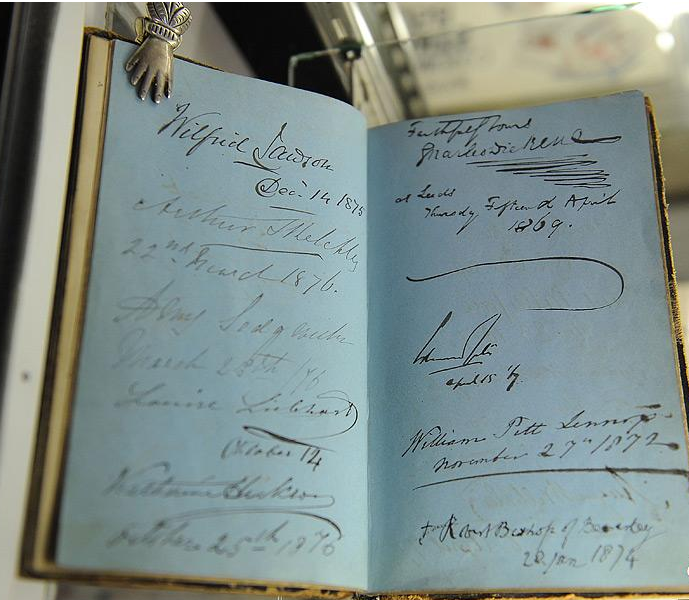 Wilfrid Lawson
Dec. 14 1875
Arthur
22nd March 1876.
Amy Sedgwick
March 25th /76
Louise Liebhart
October 14
October 25th 1876
Faithfully Yours
Charles Dickens
at Leeds
Thursday Fifteenth April
1869.
April 15
William Pitt Lennox
November 27th 1872
+ Robert Bishop of Beverley
20 Jan 1874